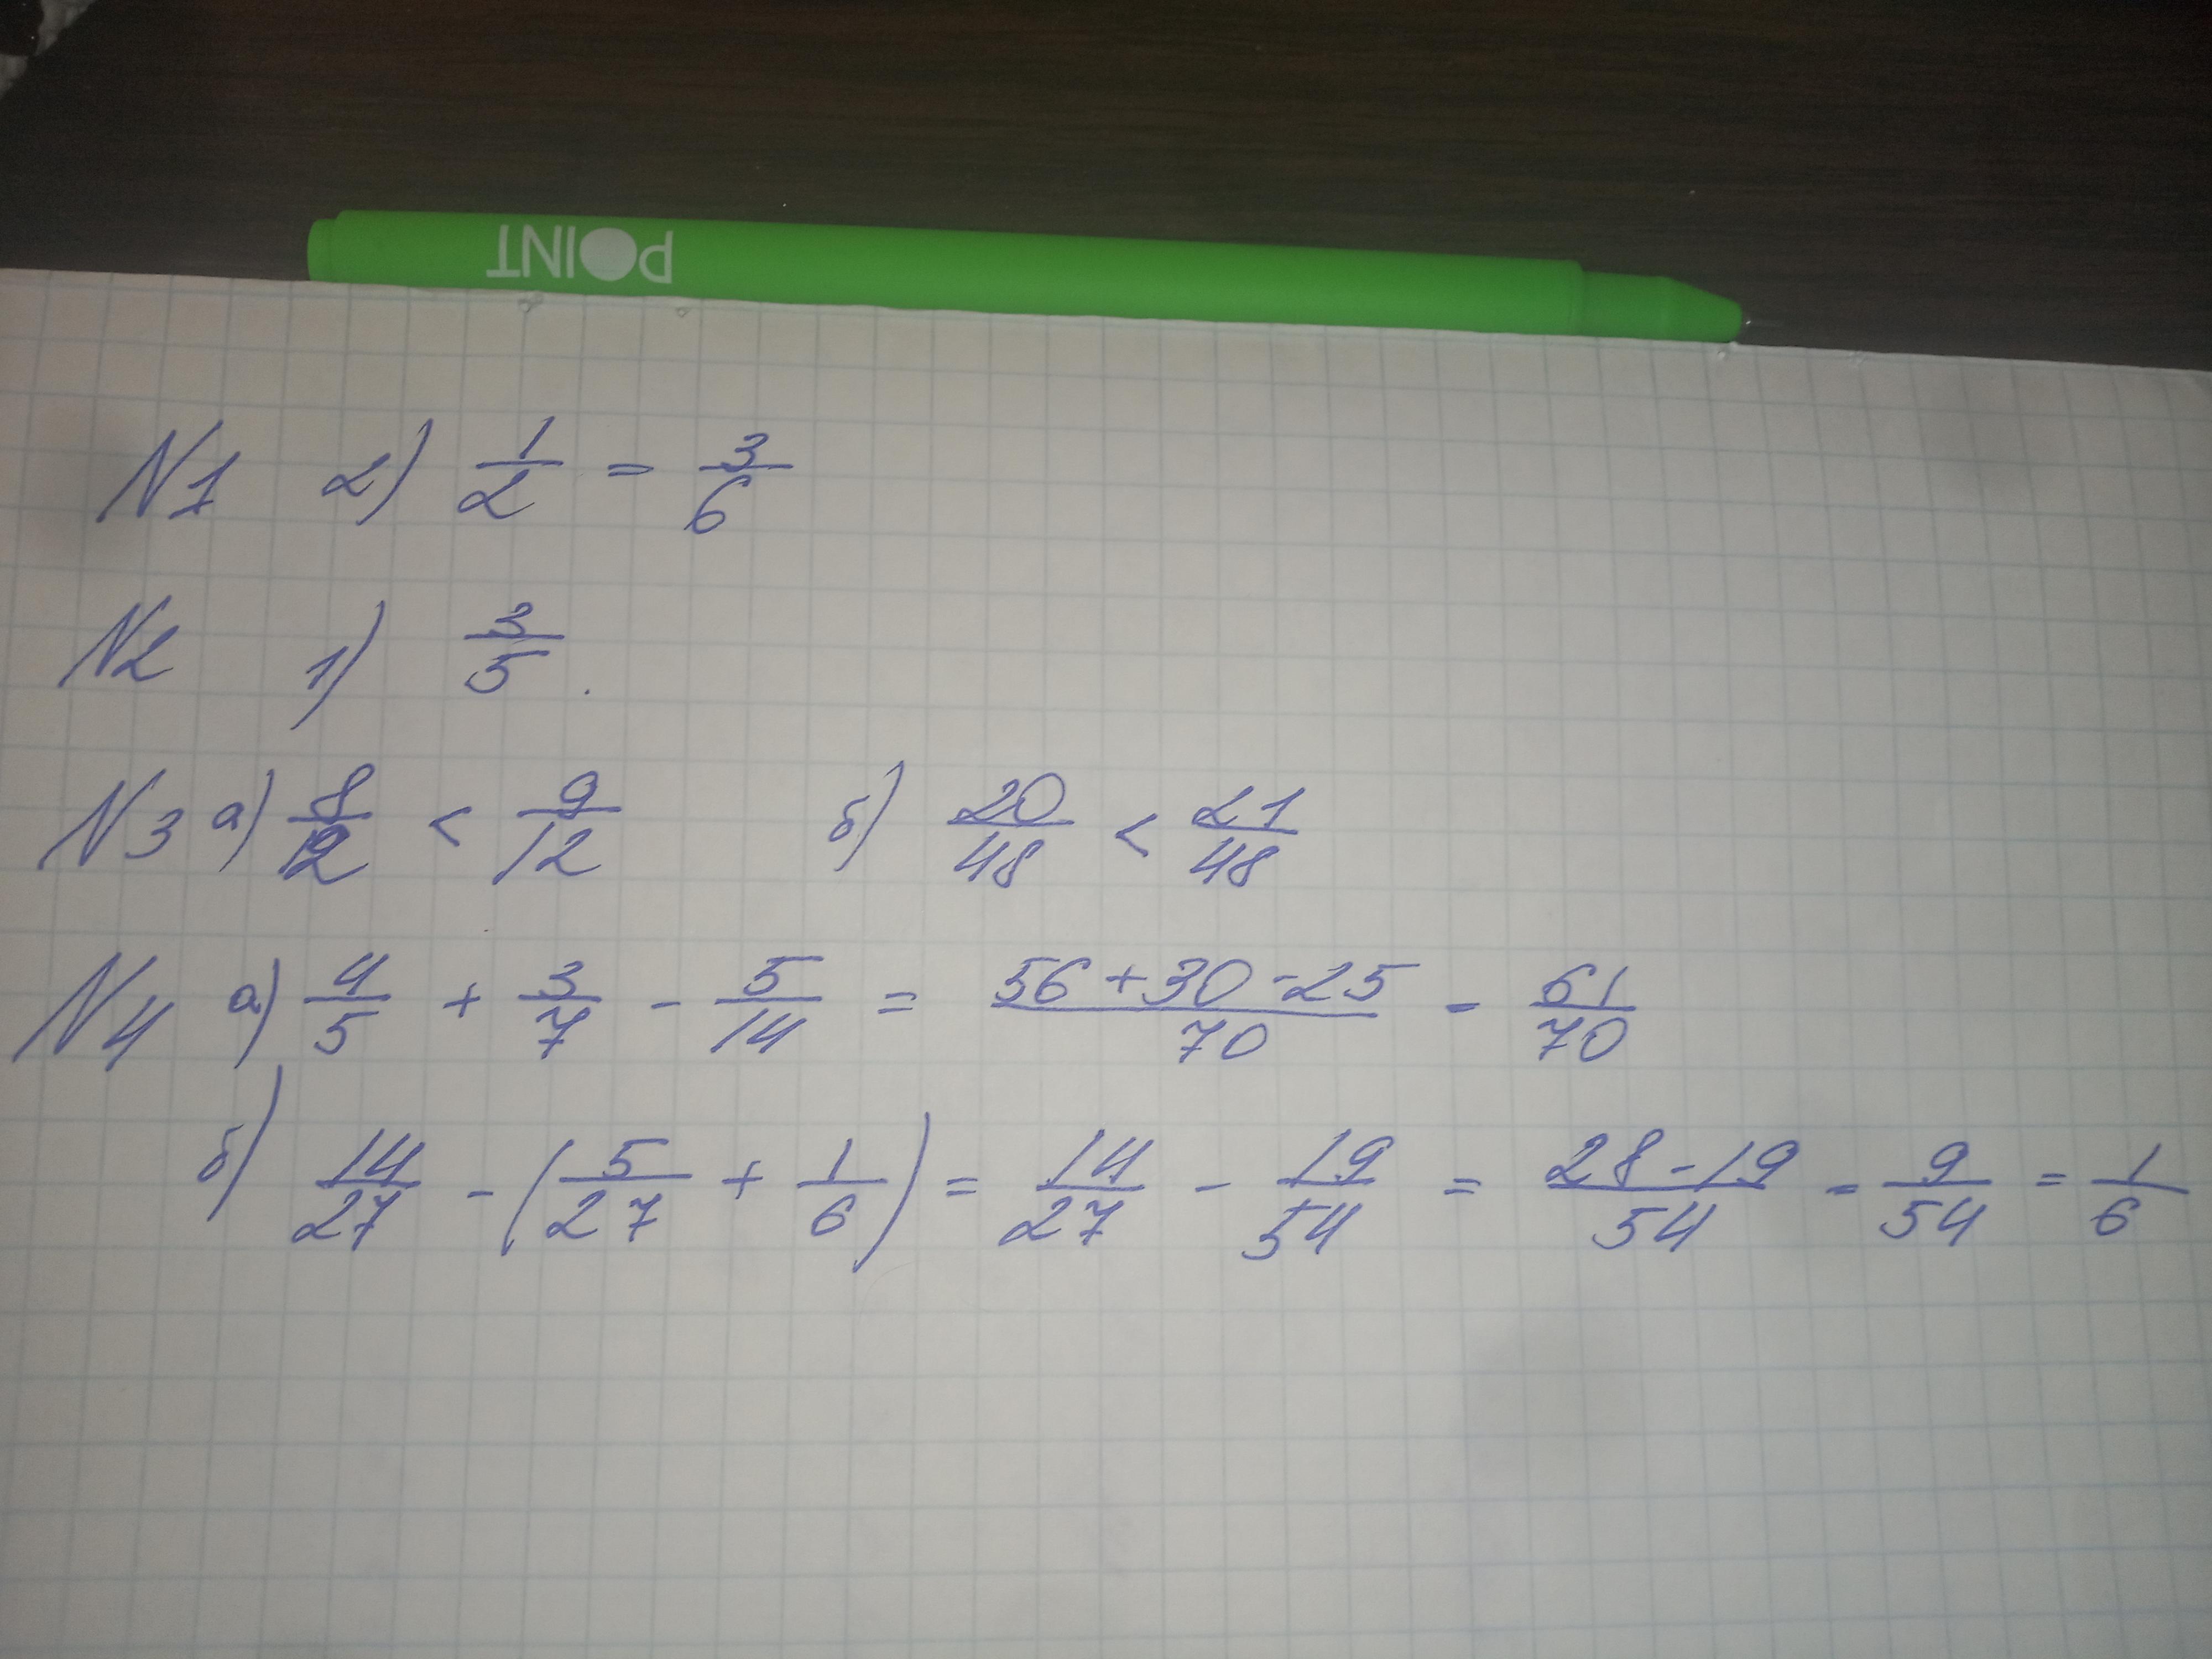 POINT
N1 2) 1/2 = 3/6
N2 1) 3/5.
N3 а) 8/12 < 9/12 б) 20/48 < 21/48
N4 а) 4/5 + 3/7 - 5/14 = (56+30-25)/70 - 61/70
б) 14/27 - (5/27 + 1/6) = 14/27 - 19/54 = (28-19)/54 - 9/54 = 1/6